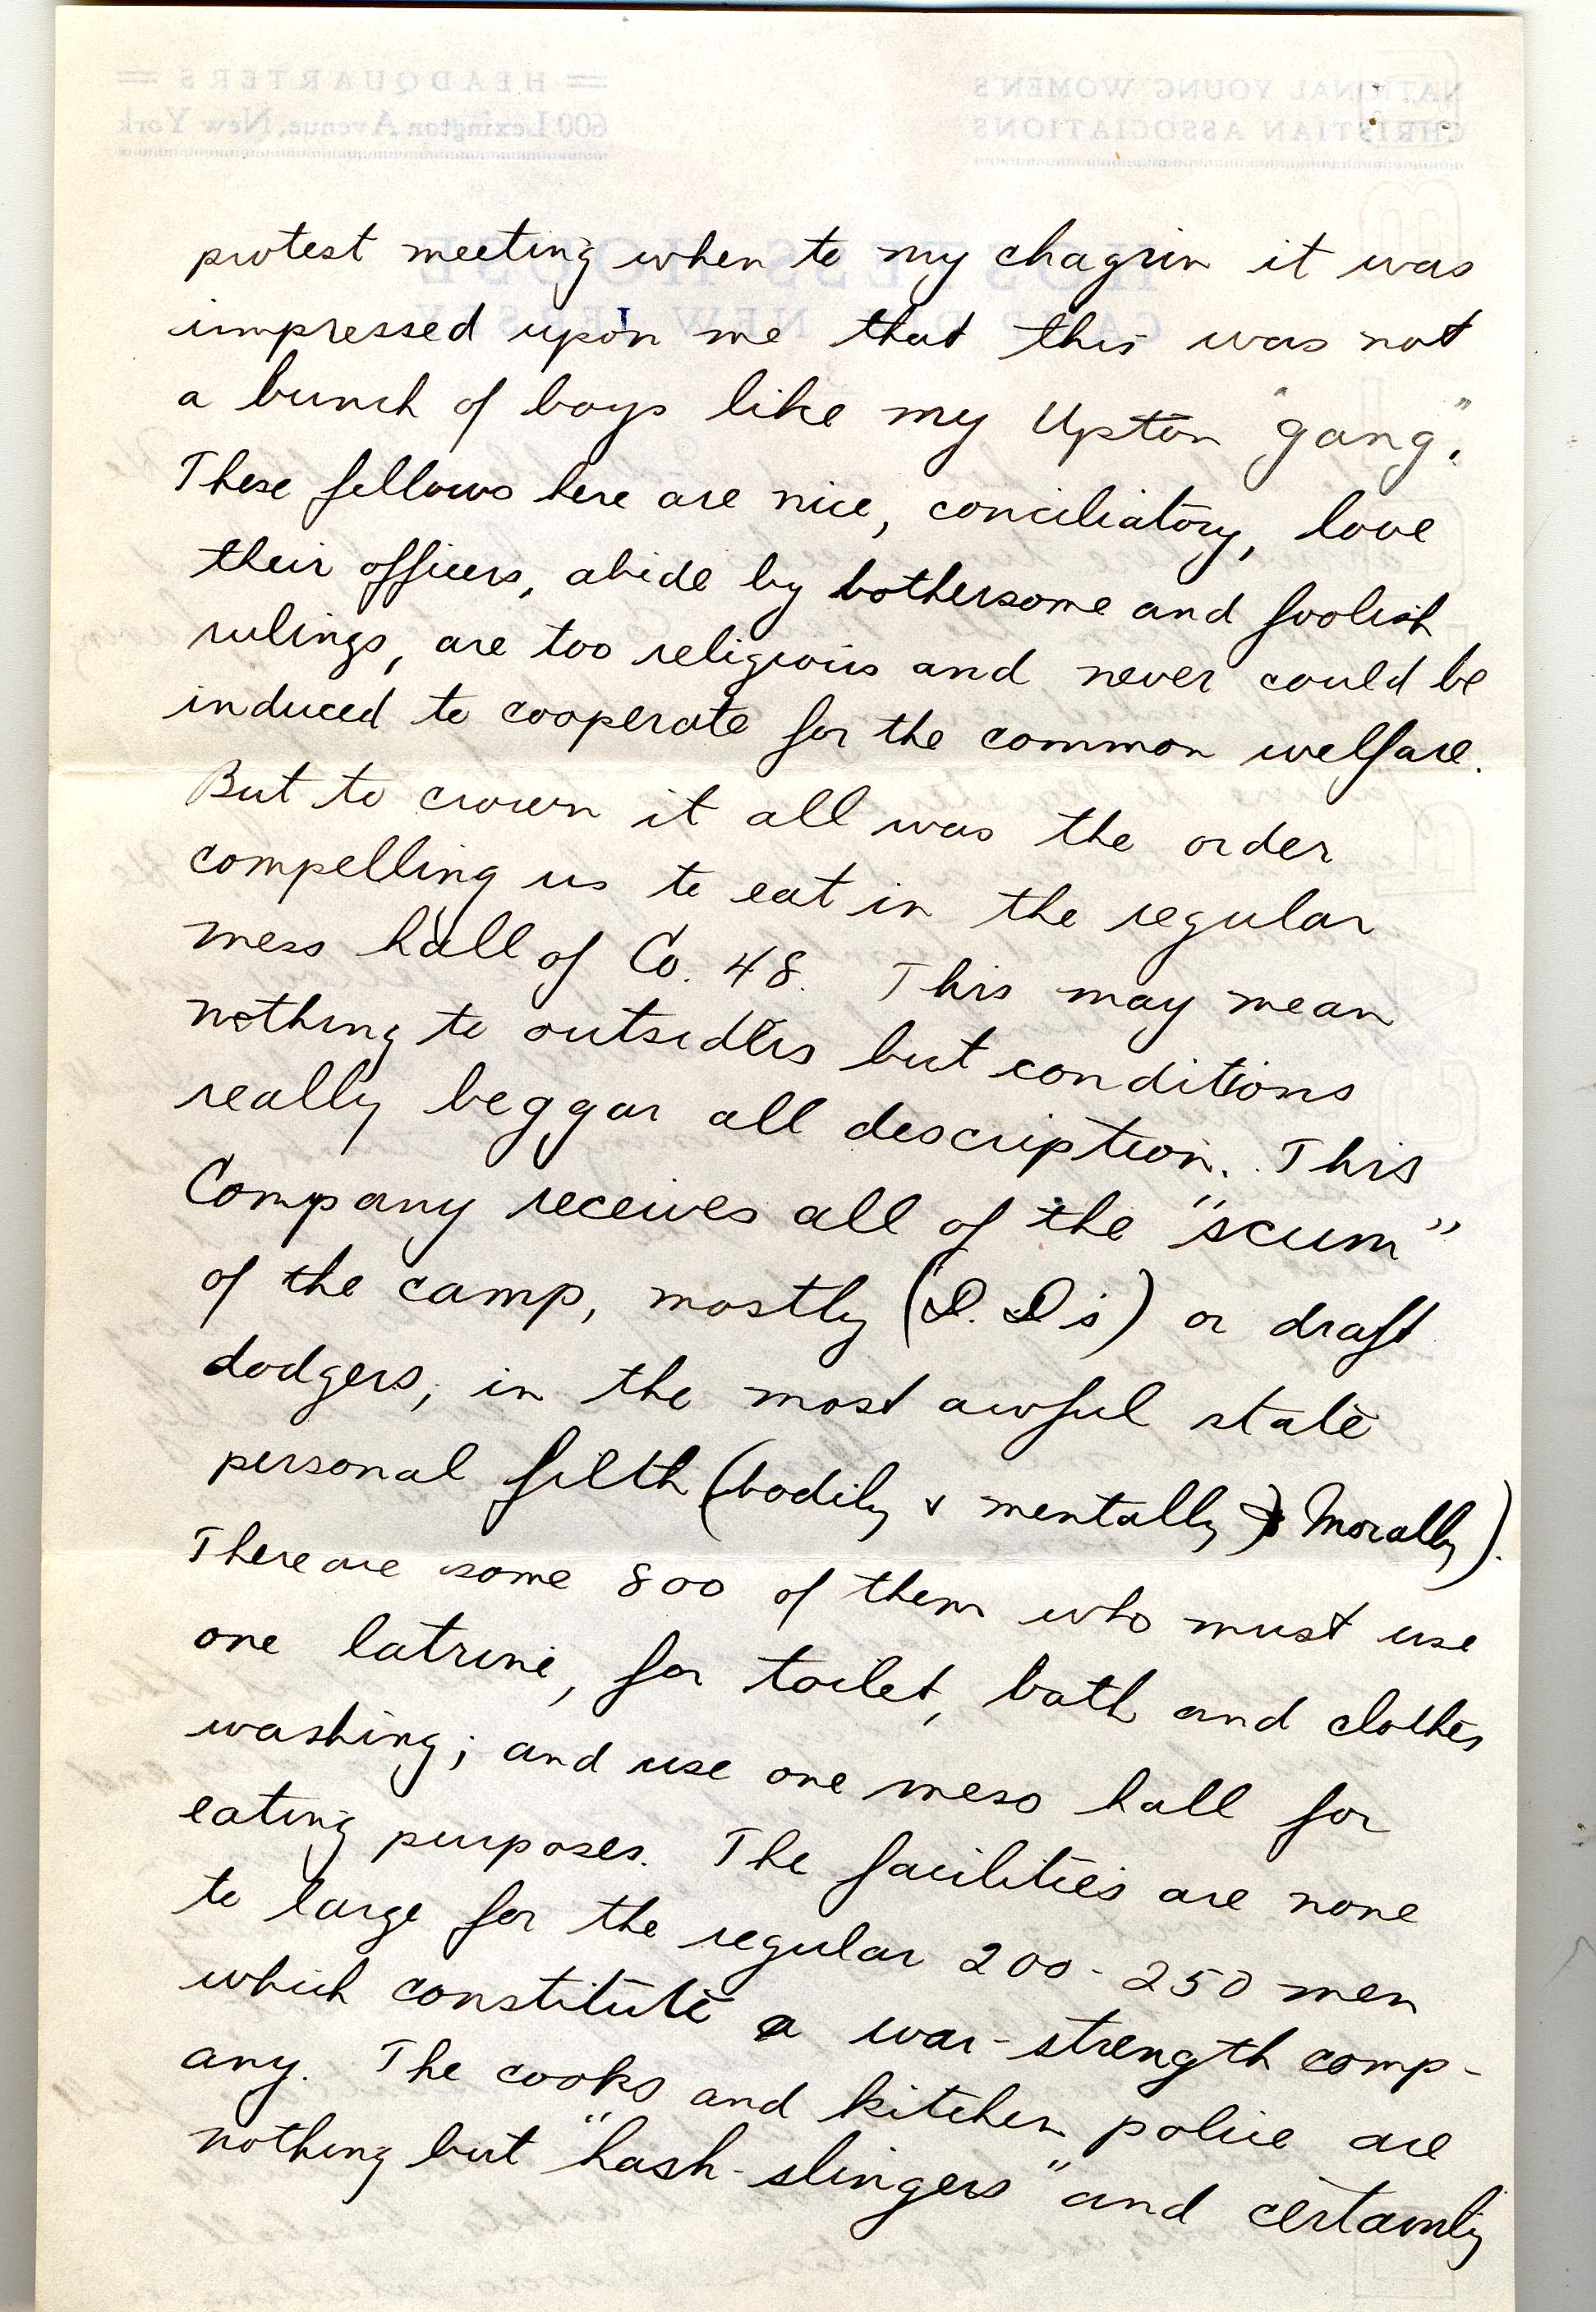 protest meeting when to my chagrin it was
impressed upon me that this was not
a bunch of boys like my Upton "gang".
These fellows here are nice, conciliatory, love
their officers, abide by bothersome and foolish
rulings, are too religious and never could be
induced to cooperate for the common welfare.
But to crown it all was the order
compelling us to eat in the regular
mess hall of Co. 48. This may mean
nothing to outsiders but conditions
really beggar all description. This
Company receives all of the "scum"
of the camp, mostly (D. D's) or draft
dodgers, in the most awful state
personal filth (bodily & mentally & Morally).
There are some 800 of them who must use
one latrine, for toilet, bath and clothes
washing; and use one mess hall for
eating purposes. The facilities are none
to large for the regular 200-250 men
which constitute a war-strength comp-
any. The cooks and kitchen police are
nothing but "hash-slingers" and certainly
NATIONAL YOUNG WOMEN'S
CHRISTIAN ASSOCIATIONS
HEADQUARTERS
600 Lexington Avenue, New York
HOSTESS HOUSE